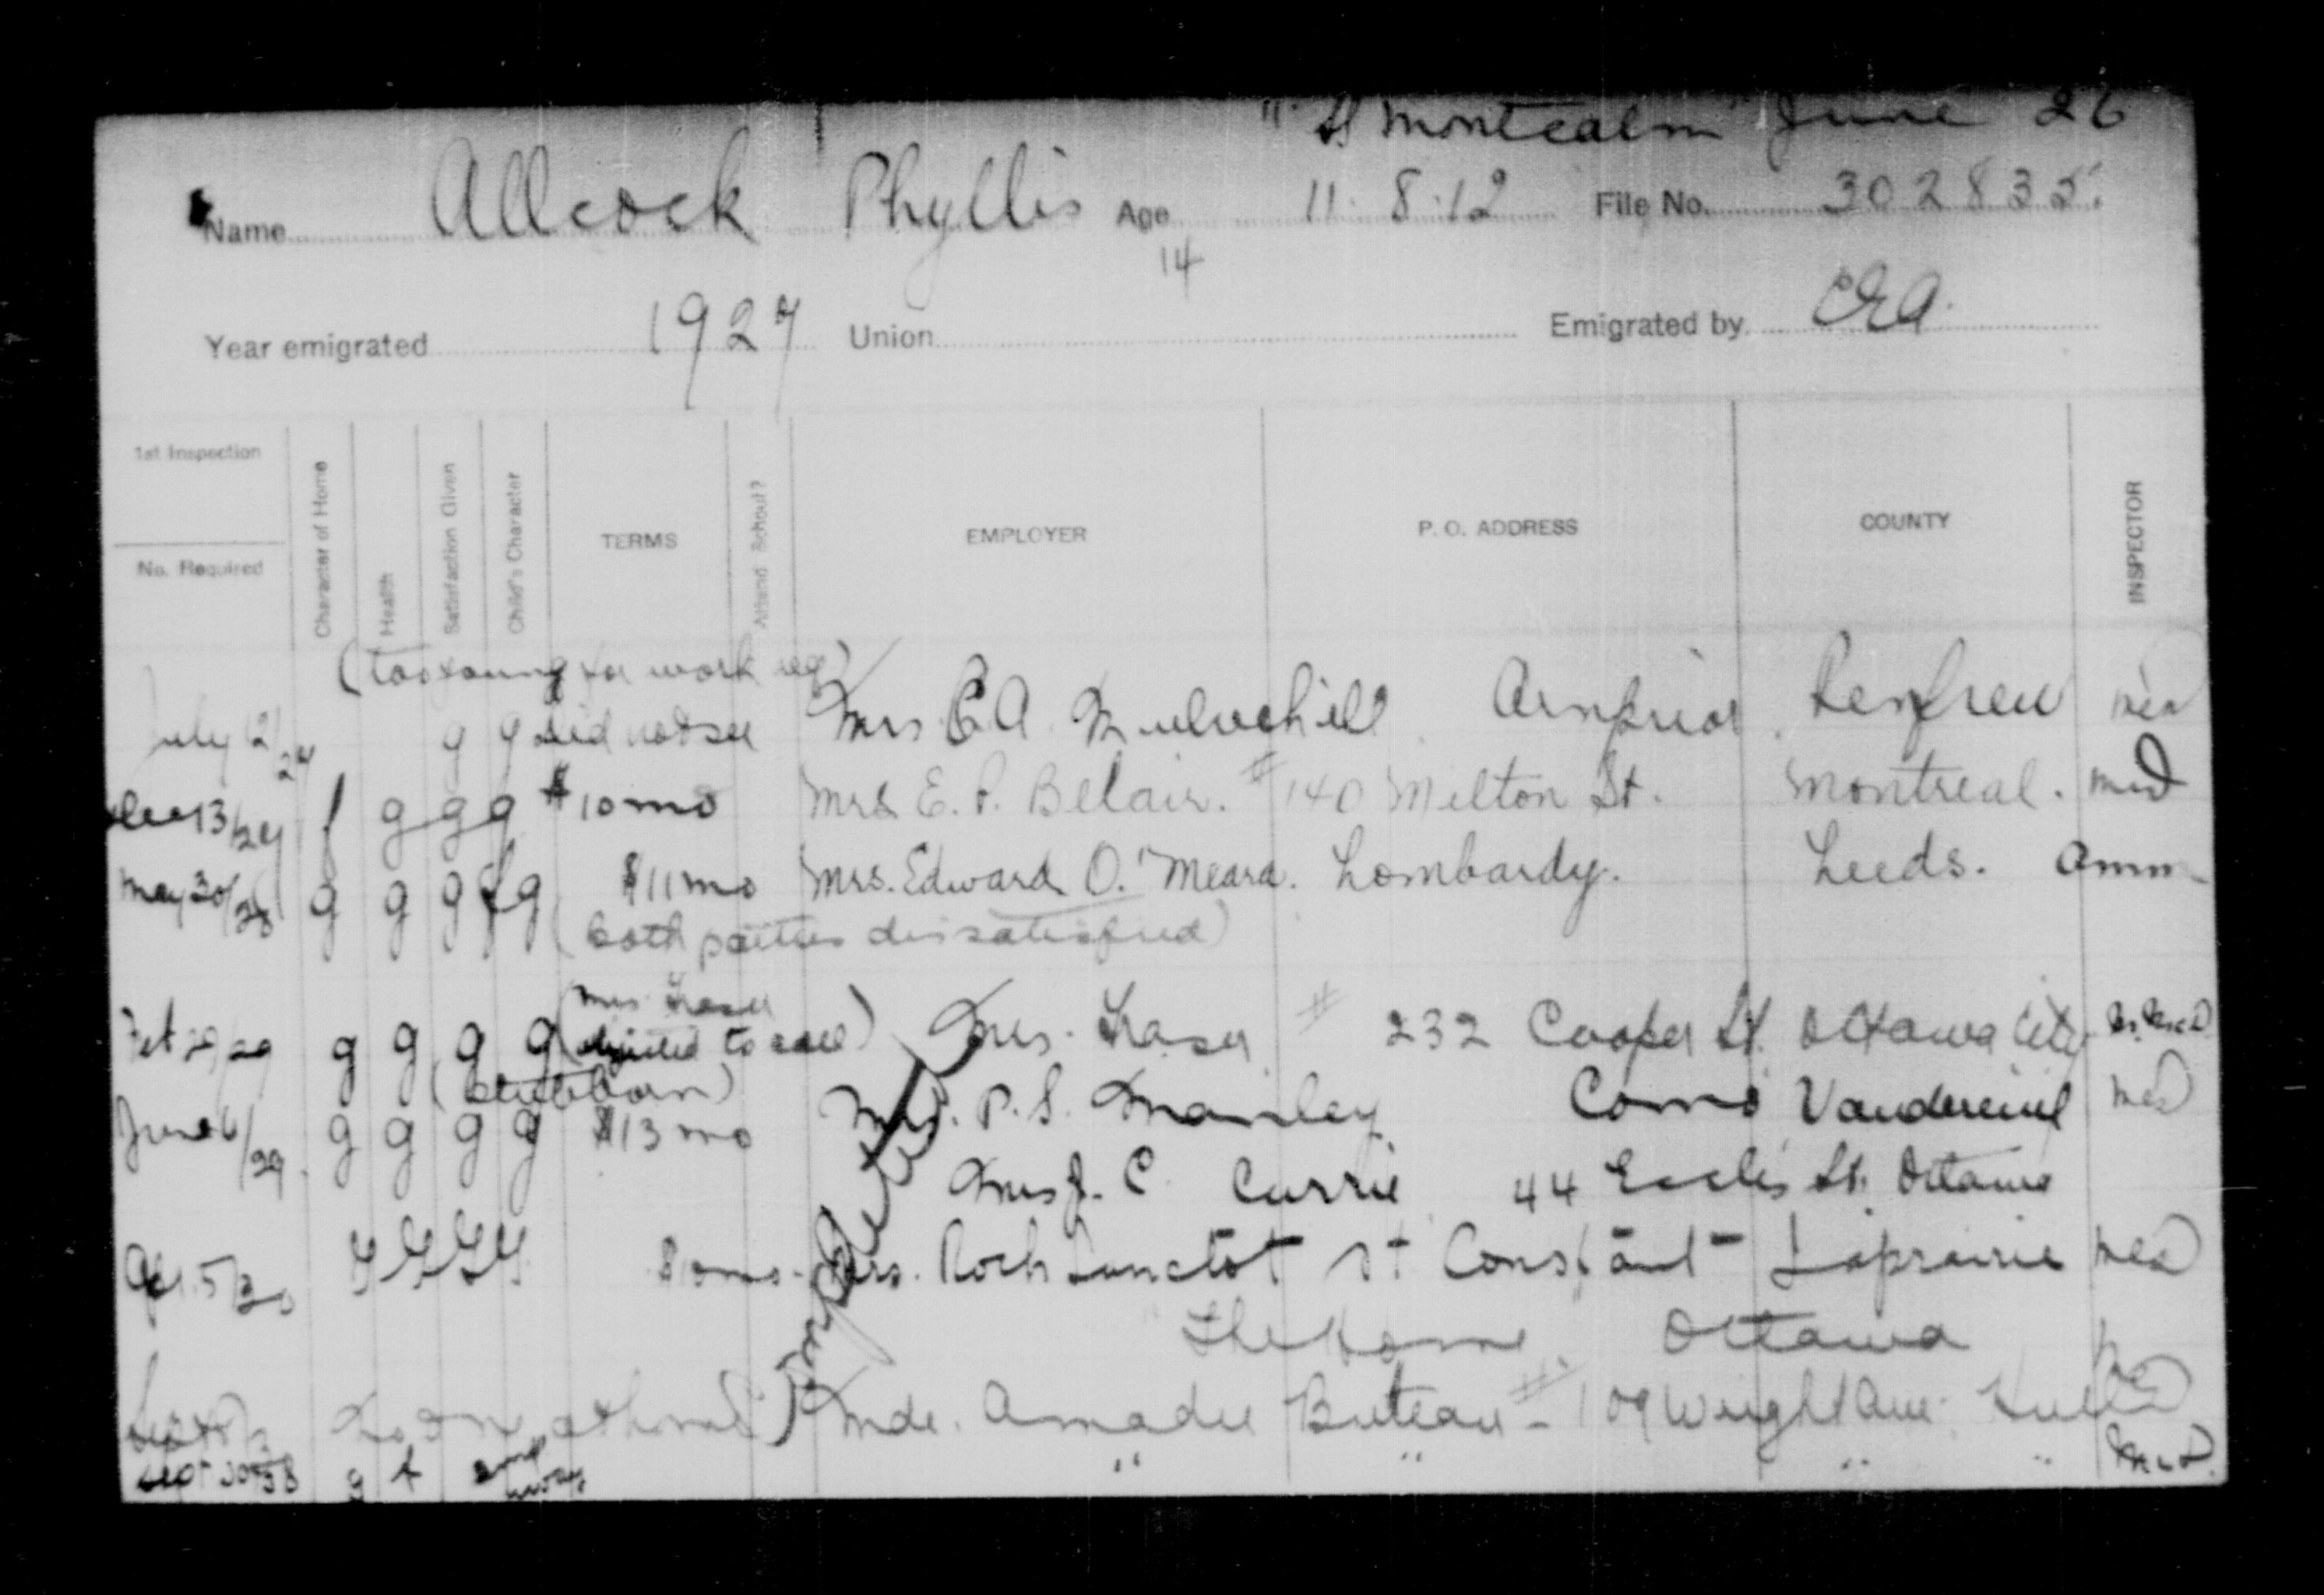 "SS Montcalm" June 26
Name Allcock Phyllis Age 11.8.12 File No. 302835
14
Year emigrated 1927 Union Emigrated by CEA.
1st Inspection
No. Required
Character of Home
Health
Satisfaction Given
Child's Character
TERMS
Attend School?
EMPLOYER
P. O. ADDRESS
COUNTY
INSPECTOR
(too young for work
July 12/27 g g did not see Mrs. E A Mulvehill Arnprior. Renfrew
Dec 13/27 f g g g $10 mo Mrs E. P. Belair. # 140 Milton St. Montreal.
May 30/28 g g g fg $11 mo Mrs. Edward O.'Meara. Lombardy. Leeds. amm
(both parties dissatisfied)
(Mrs Fraser
g g g g objected to call) Mrs. Fraser # 232 Cooper St. Ottawa City
(stubborn)
June 6/29 g g g g $13 mo Mrs. P. S. Manley Como Vaudreuil
Mrs J. C. Currie 44 Eccles St. Ottawa
5/30 g g g g Mrs. Roch Lanctot St Constant Laprairie
The Home Ottawa
Mde. Amadee Buteau - # 109 Wright Ave. Hull
Sept g f " " " "